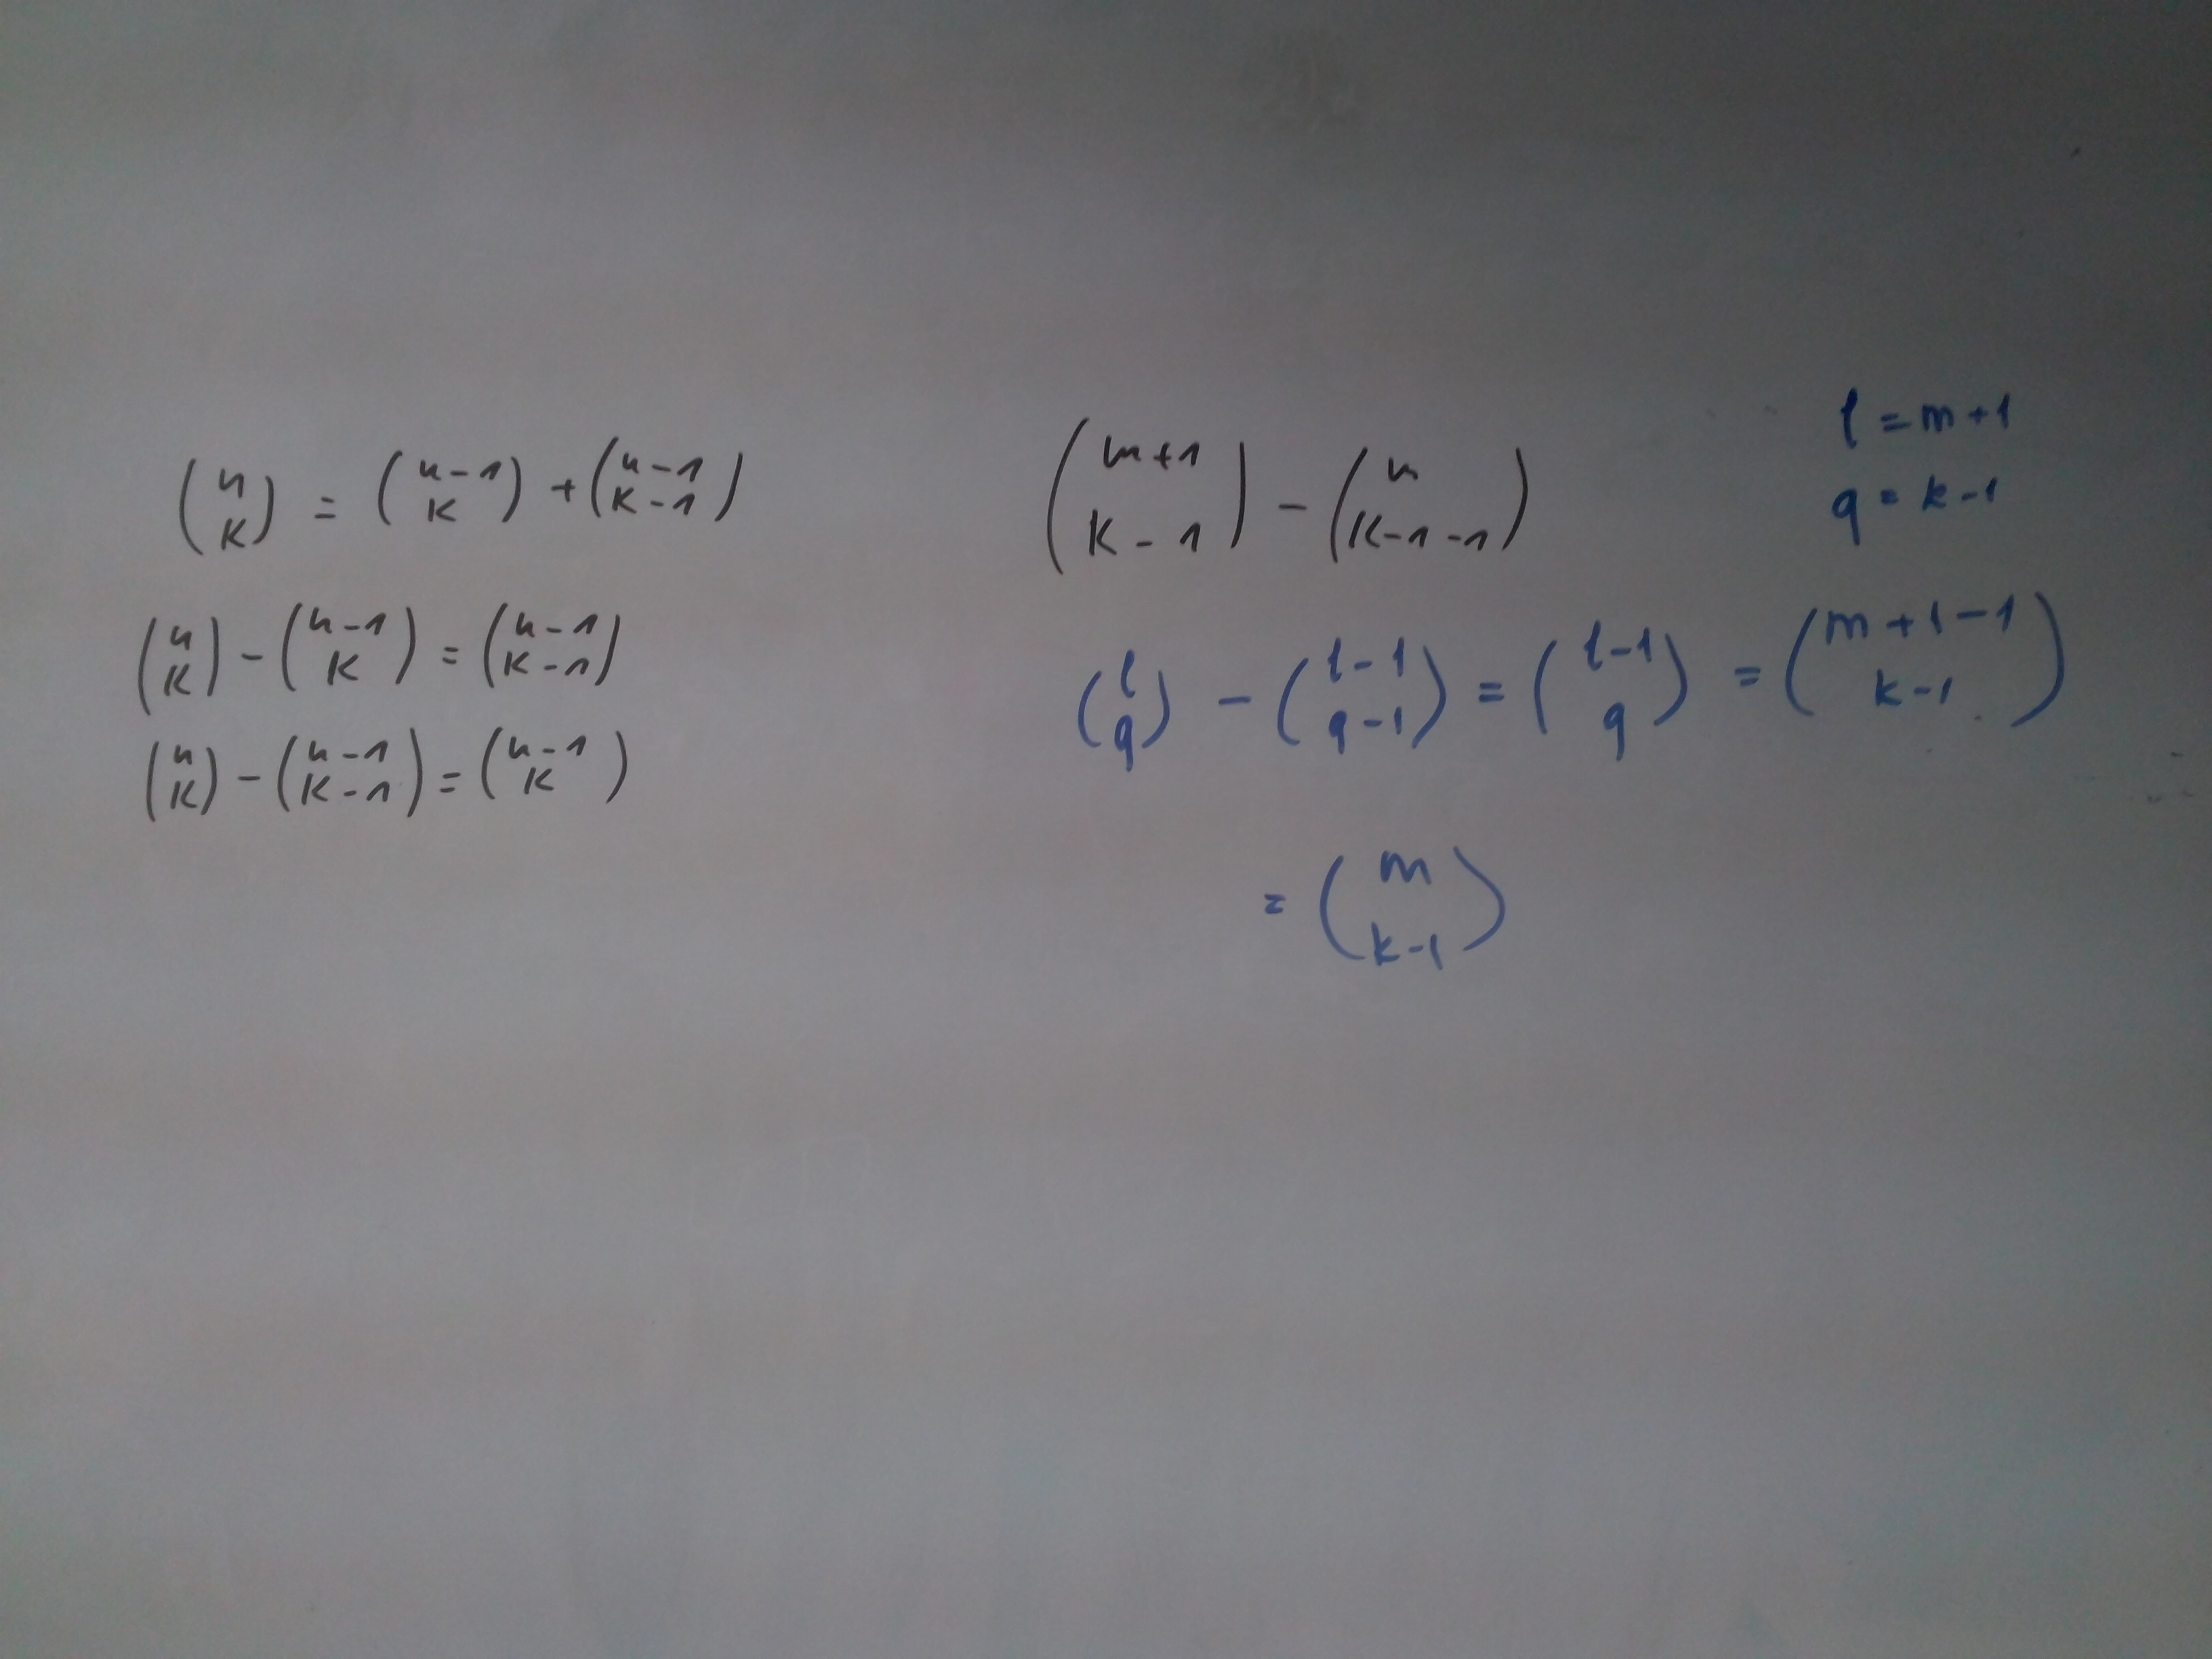 $\binom{n}{k} = \binom{n-1}{k} + \binom{n-1}{k-1}$
$\binom{n}{k} - \binom{n-1}{k} = \binom{n-1}{k-1}$
$\binom{n}{k} - \binom{n-1}{k-1} = \binom{n-1}{k}$
$\binom{m+1}{k-1} - \binom{m}{k-1-1}$
$l = m+1$
$q = k-1$
$\binom{l}{q} - \binom{l-1}{q-1} = \binom{l-1}{q} = \binom{m+1-1}{k-1}$
$= \binom{m}{k-1}$